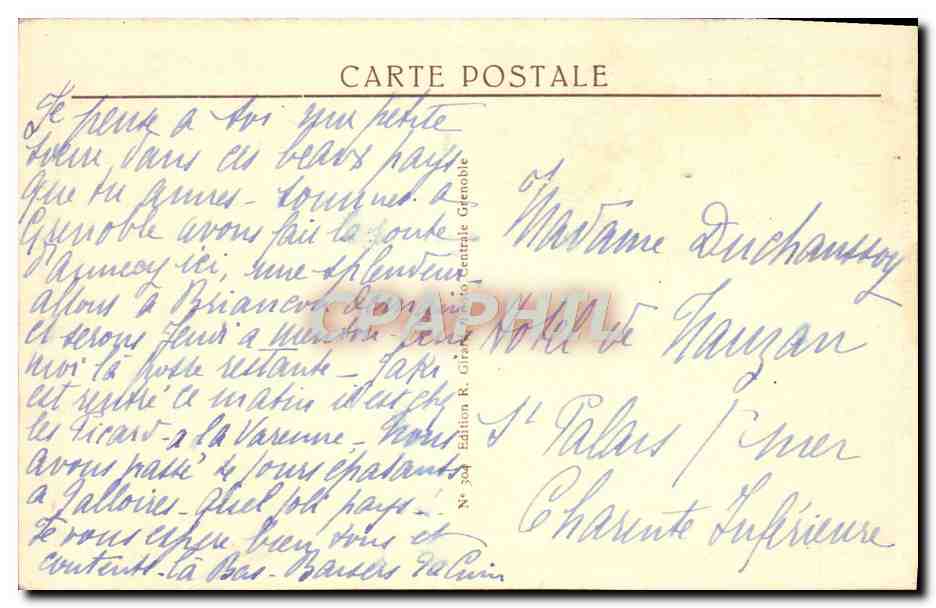 CARTE POSTALE
Je pense a toi ma petite
dans ces beaux pays
que tu aimes - sommes a
Grenoble avons fait la route
d'Annecy ici, une splendeur
allons à Briancon
et serons Jeudi a
moi là poste restante -
est rentré ce matin il est chez
les Picard - a la Varenne - Nous
avons passé de jours épatants
a Valloires - quel joli pays!
Je vous espere bien tous et
contents - là Bas - Baisers
Madame Duchaussoy
Hotel de Nauzan
St Palais s/ mer
Charente Inférieure
N° 304 Edition R. Centrale Grenoble
CPAPHIL